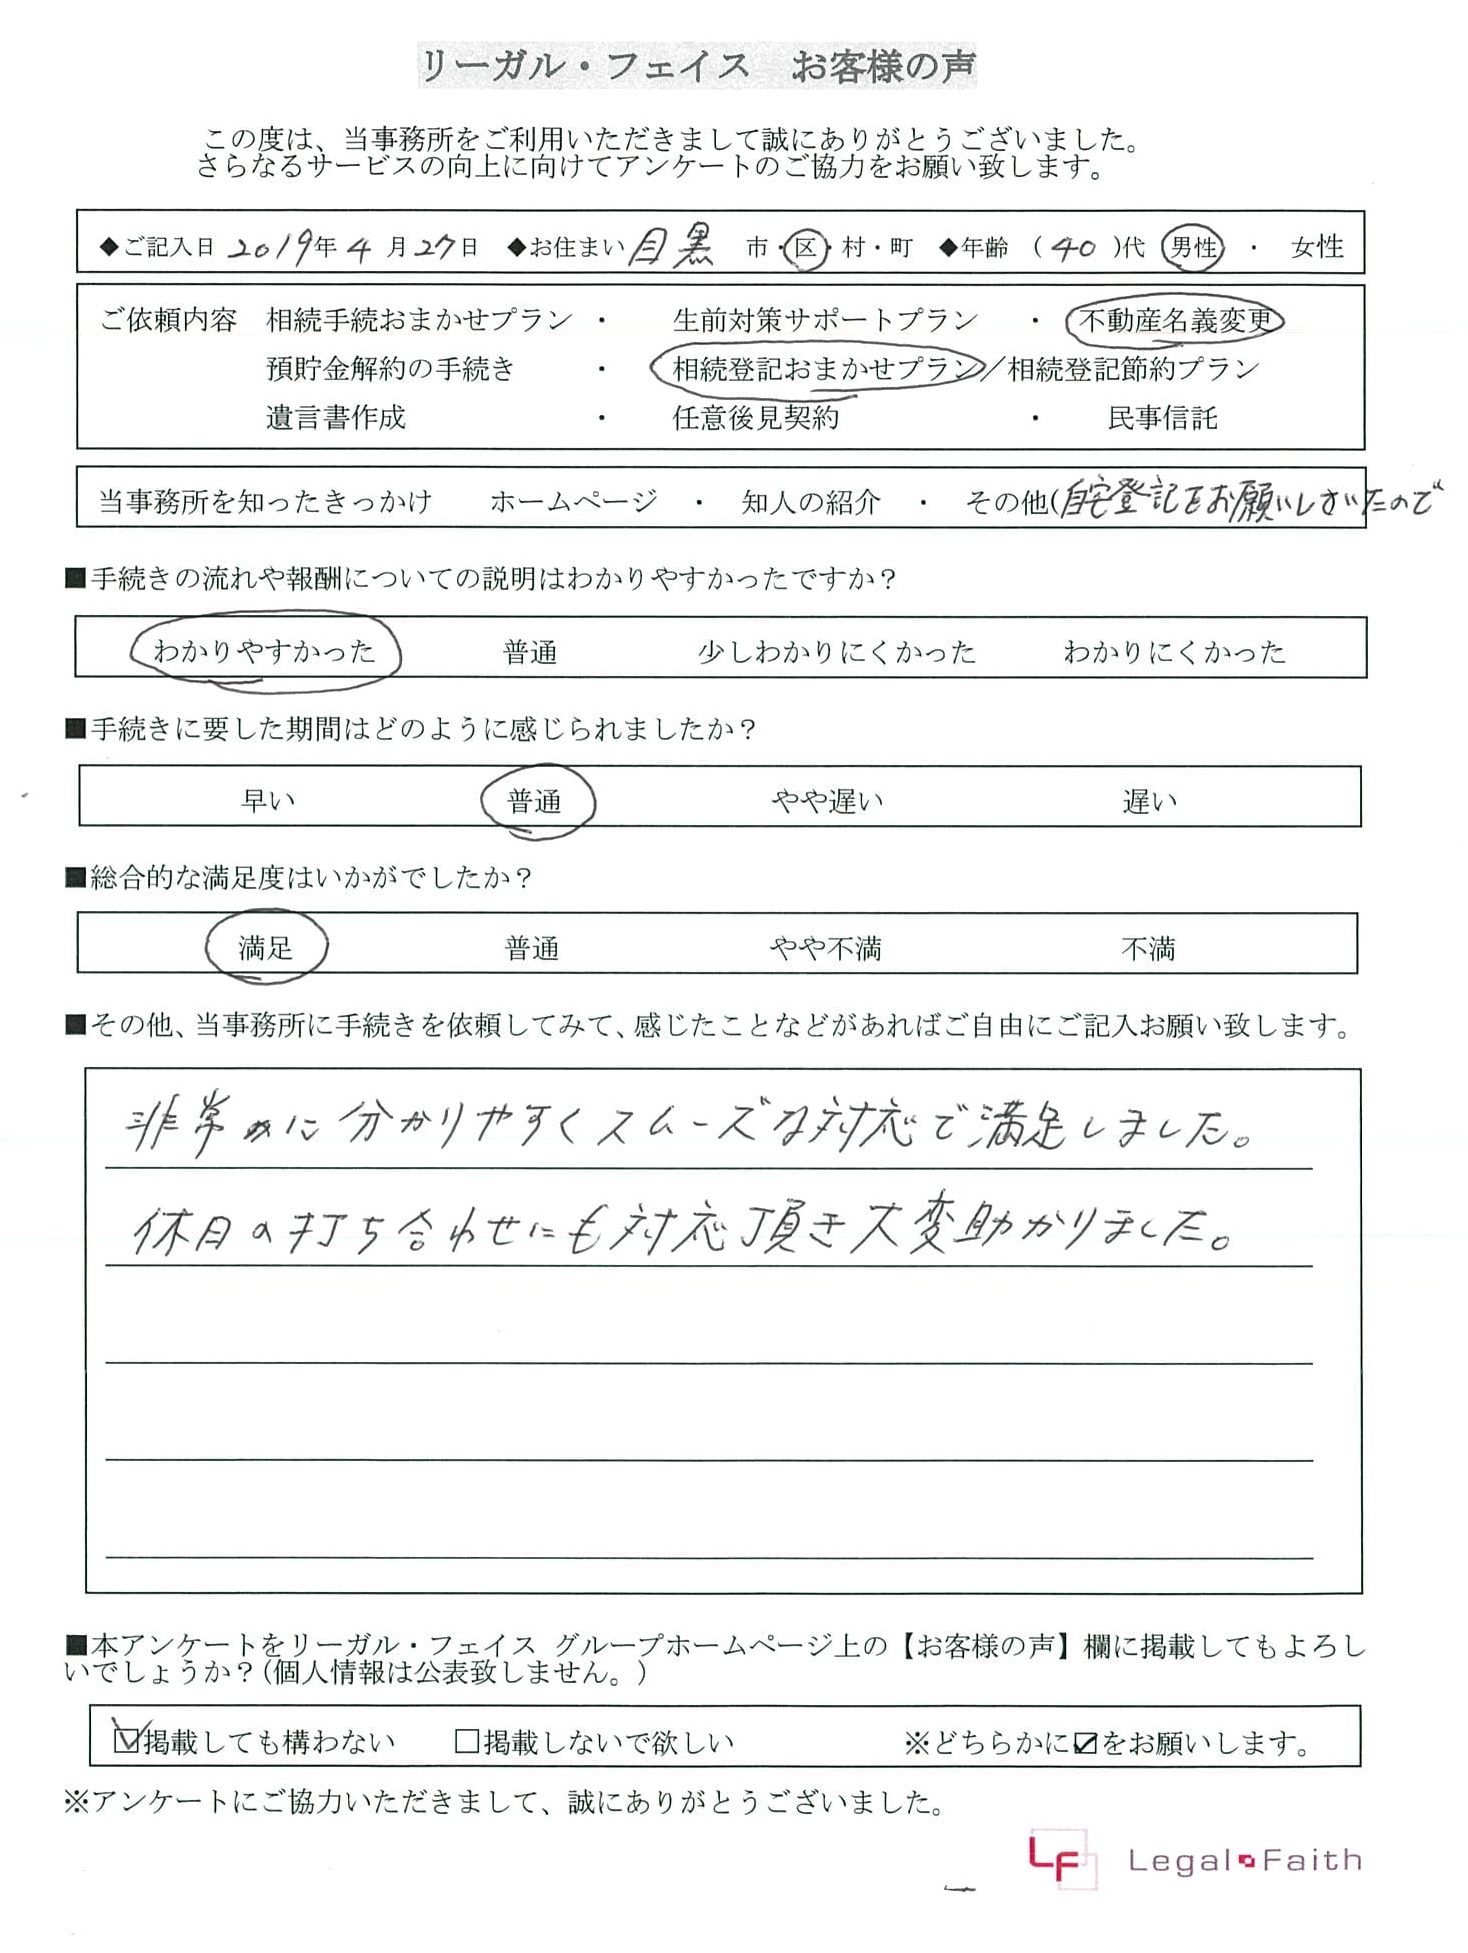 リーガル・フェイス　お客様の声
この度は、当事務所をご利用いただきまして誠にありがとうございました。
さらなるサービスの向上に向けてアンケートのご協力をお願い致します。
◆ご記入日 2019年 4 月 27日 ◆お住まい 目黒 市・区・村・町 ◆年齢 （ 40 ）代 男性 ・ 女性
ご依頼内容 相続手続おまかせプラン ・ 生前対策サポートプラン ・ 不動産名義変更
預貯金解約の手続き ・ 相続登記おまかせプラン／相続登記節約プラン
遺言書作成 ・ 任意後見契約 ・ 民事信託
当事務所を知ったきっかけ ホームページ ・ 知人の紹介 ・ その他(自宅登記をお願いしていたので
■手続きの流れや報酬についての説明はわかりやすかったですか？
わかりやすかった 普通 少しわかりにくかった わかりにくかった
■手続きに要した期間はどのように感じられましたか？
早い 普通 やや遅い 遅い
■総合的な満足度はいかがでしたか？
満足 普通 やや不満 不満
■その他、当事務所に手続きを依頼してみて、感じたことなどがあればご自由にご記入お願い致します。
非常に分かりやすくスムーズな対応で満足しました。
休日の打ち合わせにも対応頂き大変助かりました。
■本アンケートをリーガル・フェイス グループホームページ上の【お客様の声】欄に掲載してもよろし
いでしょうか？（個人情報は公表致しません。）
☑掲載しても構わない □掲載しないで欲しい ※どちらかに☑をお願いします。
※アンケートにご協力いただきまして、誠にありがとうございました。
LF Legal Faith